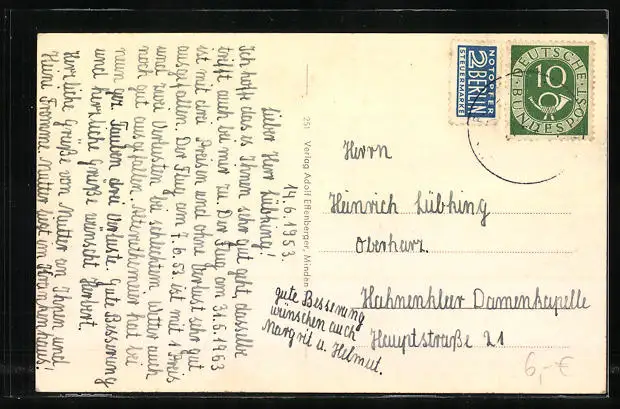 14.6.1953.
Lieber Herr Lübhing!
Ich hoffe das es Ihnen sehr gut geht, dasselbe
trifft auch bei mir zu. Der Flug am 31.5.1963
ist mit drei Preisen und ohne Verlust sehr gut
ausgefallen. Der Flug am 7.6.53. ist mit 1 Preis
und zwei Verlusten bei schlechtem Wetter auch
noch gut ausgefallen. hat bei
neun Tauben drei Verluste. Gute Besserung
und herzliche Grüße wünscht Herbert.
Herzliche Grüße von Mutter an Ihnen und
Heini Fromme. Mutter liegt im Krankenhaus!
gute Besserung
wünschen auch
Margrit u. Helmut.
251 Verlag Adolf Effenberger, Minden
NOTOPFER
2 BERLIN
STEUERMARKE
DEUTSCHE
BUNDESPOST
10
Herrn
Heinrich Lübhing
Oberharz.
Hahnenklee Damenkapelle
Hauptstraße 21
6,-€